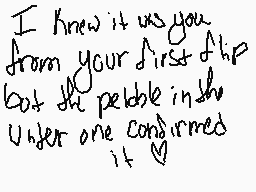 I knew it was you
from your first flip
but the pebble in the
Winter one confirmed
it ♡